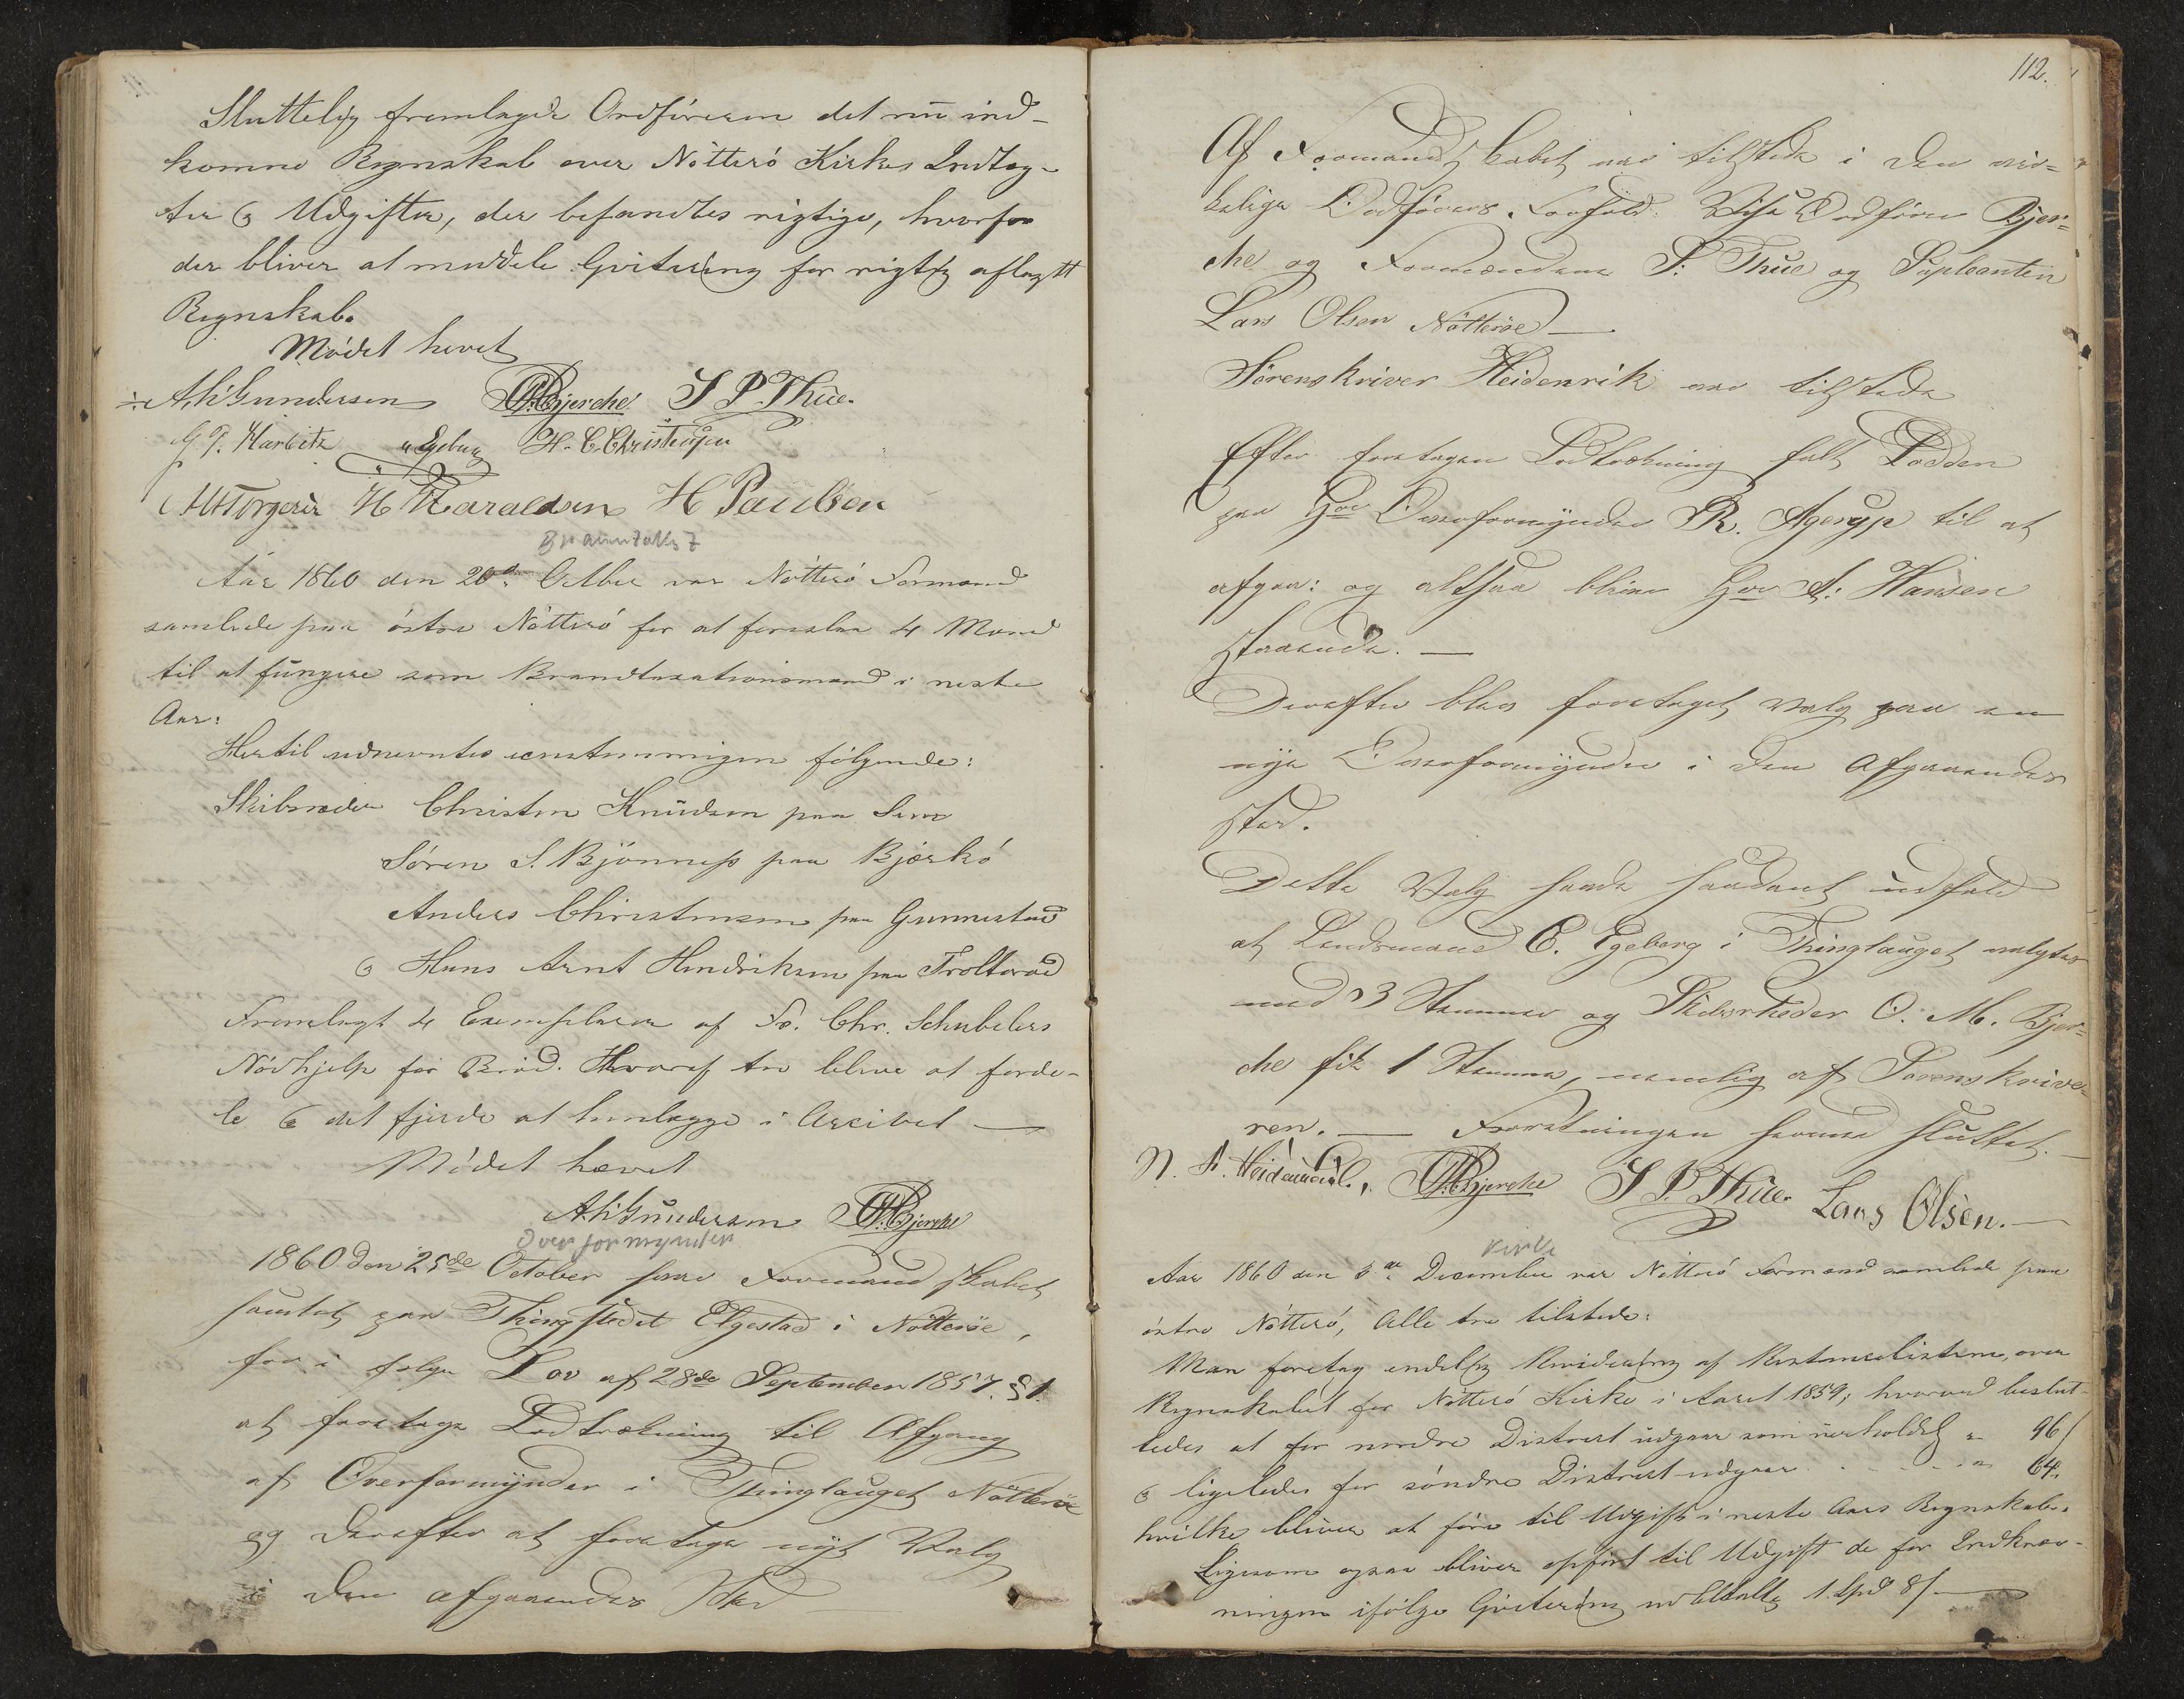 Sluttelig fremlagde Ordføreren det nu ind-
komne Regnskab over Nötterö Kirkes Indtæg-
ter & Udgifter, der befandtes rigtige, hvorfor
der bliver at meddele Qvitering for rigtig aflagt
Regnskab.
Mödet hevet
A. H. Gundersen O. M. Bjerche S P. Thue.
G. P. Harbitz Egeberg H. C. Christensen
H Haraldsen H Paulsen
Branntakst
Aar 1860 den 20de Octber var Nötterö Formand
samlede paa östre Nötterö for at foreslaa 4 Mænd
til at fungere som Brandtaxationsmænd i neste
Aar:
Hertil udnevntes eenstemmigen fölgende:
Skibsreder Christen Knudsen paa Sem
Sören S. Bjönness paa Bjerkö
Anders Christensen paa Gunnestad
& Hans Arnt Hendriksen paa Trolleraad
Fremlagt 4 Exemplarer af Fr. Chr. Schubelers
Nödhjelp for Bröd. Hvoraf tre blive at forde-
le & det fjerde at henlægge i Arcivet —
Mödet hævet
A. H. Gundersen O. M. Bjerche
Overformynder
1860 den 25de October var Formandskabet
samlet paa Thingstedet Elgestad i Nötteröe,
for i følge Lov af 28de September 1857. § 1.
at foretage Lodtrækning til Afgang
af Overformynder i Thinglauget Nötteröe
og derefter at foretage nyt Valg
i den afgaaendes Sted
112.
Af Formandskabet var tilstede i den vir-
kelige Ordförers Forfald: Vise Ordförer Bjer-
che og Formændene S: Thue og Supleanten
Lars Olsen Nötteröe —
Sörenskriver Heidenrik var tilstede
Efter foretagen Lodtrækning falt Lodden
paa Hrr Overformynder R. Agerup til at
afgaa: og altsaa bliver Hrr A: Hansen
staaende. —
Derefter blev foretaget Valg paa en
nye Overformynder i den Afgaaendes
sted.
Dette Valg havde saadant udfald
at Lendsmand C. Egeberg i Thinglauget valgtes
med 3 Stemmer og Skibsrheder O. M. Bjer-
che fik 1 Stemme, nemlig af Sorenskrive-
ren. — Forretningen hermed sluttet. —
N. F. Heidenreich. O. M. Bjerche S P. Thue. Lars Olsen. —
Kirke
Aar 1860 den 3de December var Nötterö Formænd samlede paa
östre Nötterö, Alle tre tilstede:
Man foretog endelig Revidering af Restanselisten, over
Regnskabet for Nötterö Kirke i Aaret 1859, hvorved beslut-
tedes at for nordre Distrect udgaar som uerholdelig " 96 /
& ligeledes for söndre Distrect udgaar . . . . " 64.
hvilke bliver at före til Udgift i neste Aars Regnskab.
Ligesom ogsaa bliver opfört til Udgift de for Indkræv-
ningen ifölge Qvitering udbetalte 1. Spd 8/ —